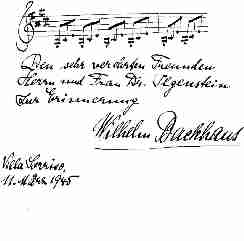 Den sehr verehrten Freunden
Herrn und Frau Dr. Ilgenstein
zur Erinnerung
Wilhelm Backhaus
Villa Sorriso,
11. M 1945